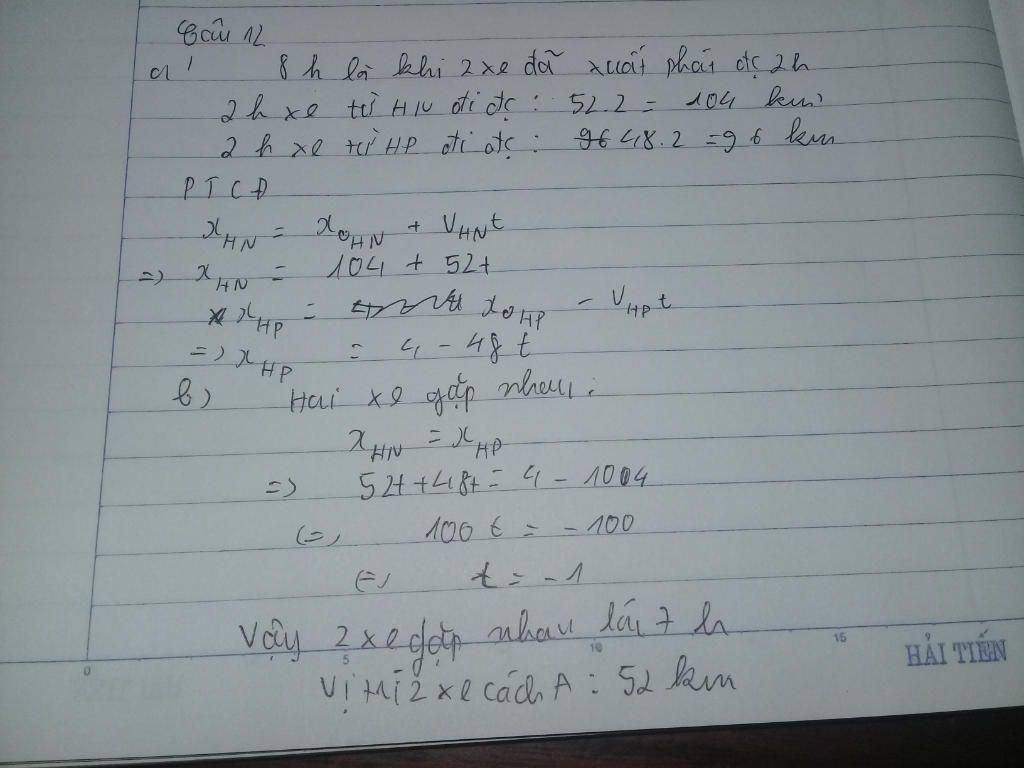 Câu 12
a) 8 h là khi 2 xe đã xuất phát đc 2h
2 h xe từ HN đi đc : 52.2 = 104 km
2 h xe từ HP đi đc : 48.2 = 96 km
PTCĐ
x_HN = x_0HN + V_HN t
=> x_HN = 104 + 52t
x_HP = x_0HP - V_HP t
=> x_HP = 4 - 48 t
b) Hai xe gặp nhau :
x_HN = x_HP
=> 52t + 48t = 4 - 104
(=) 100 t = - 100
(=) t = - 1
Vậy 2 xe gặp nhau lúc 7 h
Vị trí 2 xe cách A : 52 km
0 5 10 15
HẢI TIẾN